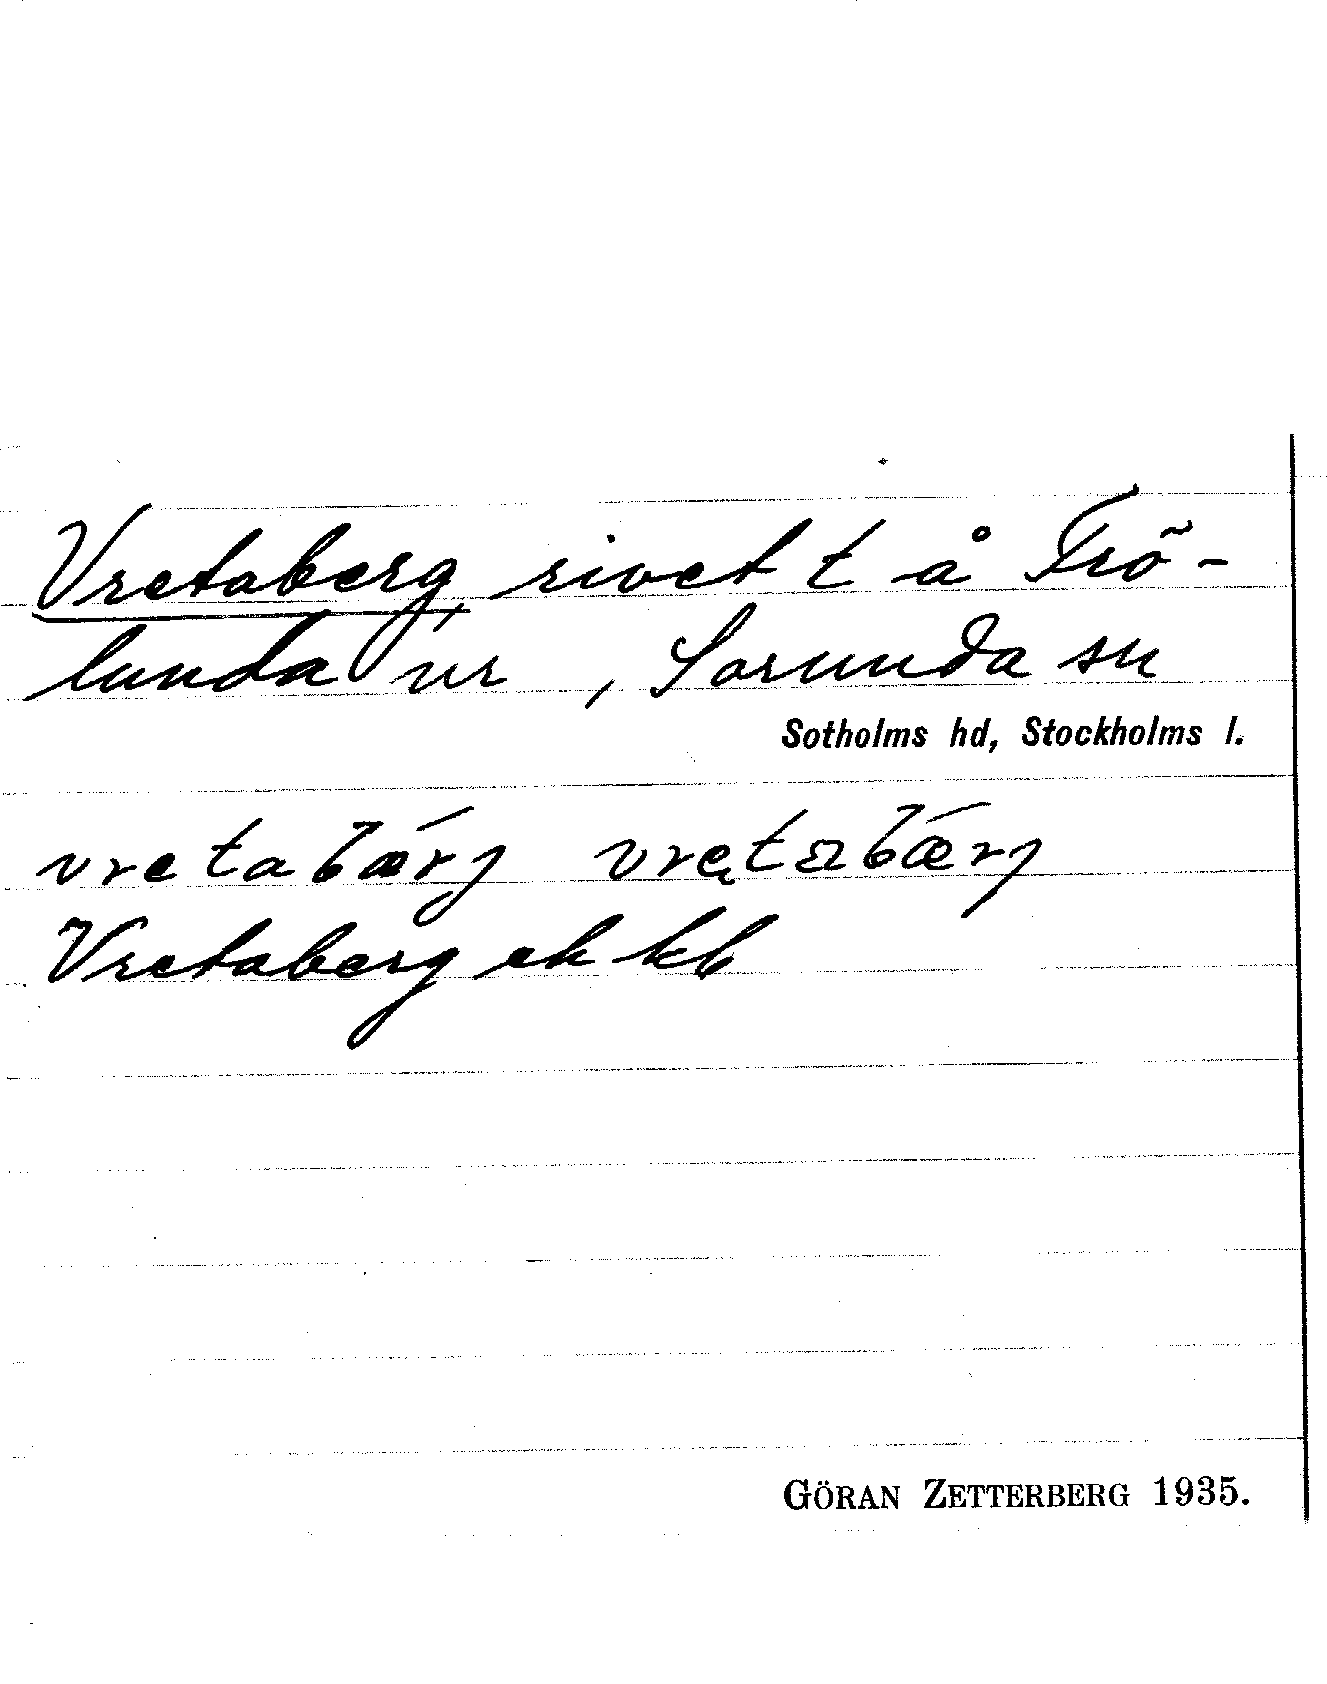 Vretaberg, rivet t å Frö-
lunda nr , Sorunda sn
Sotholms hd, Stockholms l.
vretabærj vretabærj
Vretaberg ek kb
GÖRAN ZETTERBERG 1935.